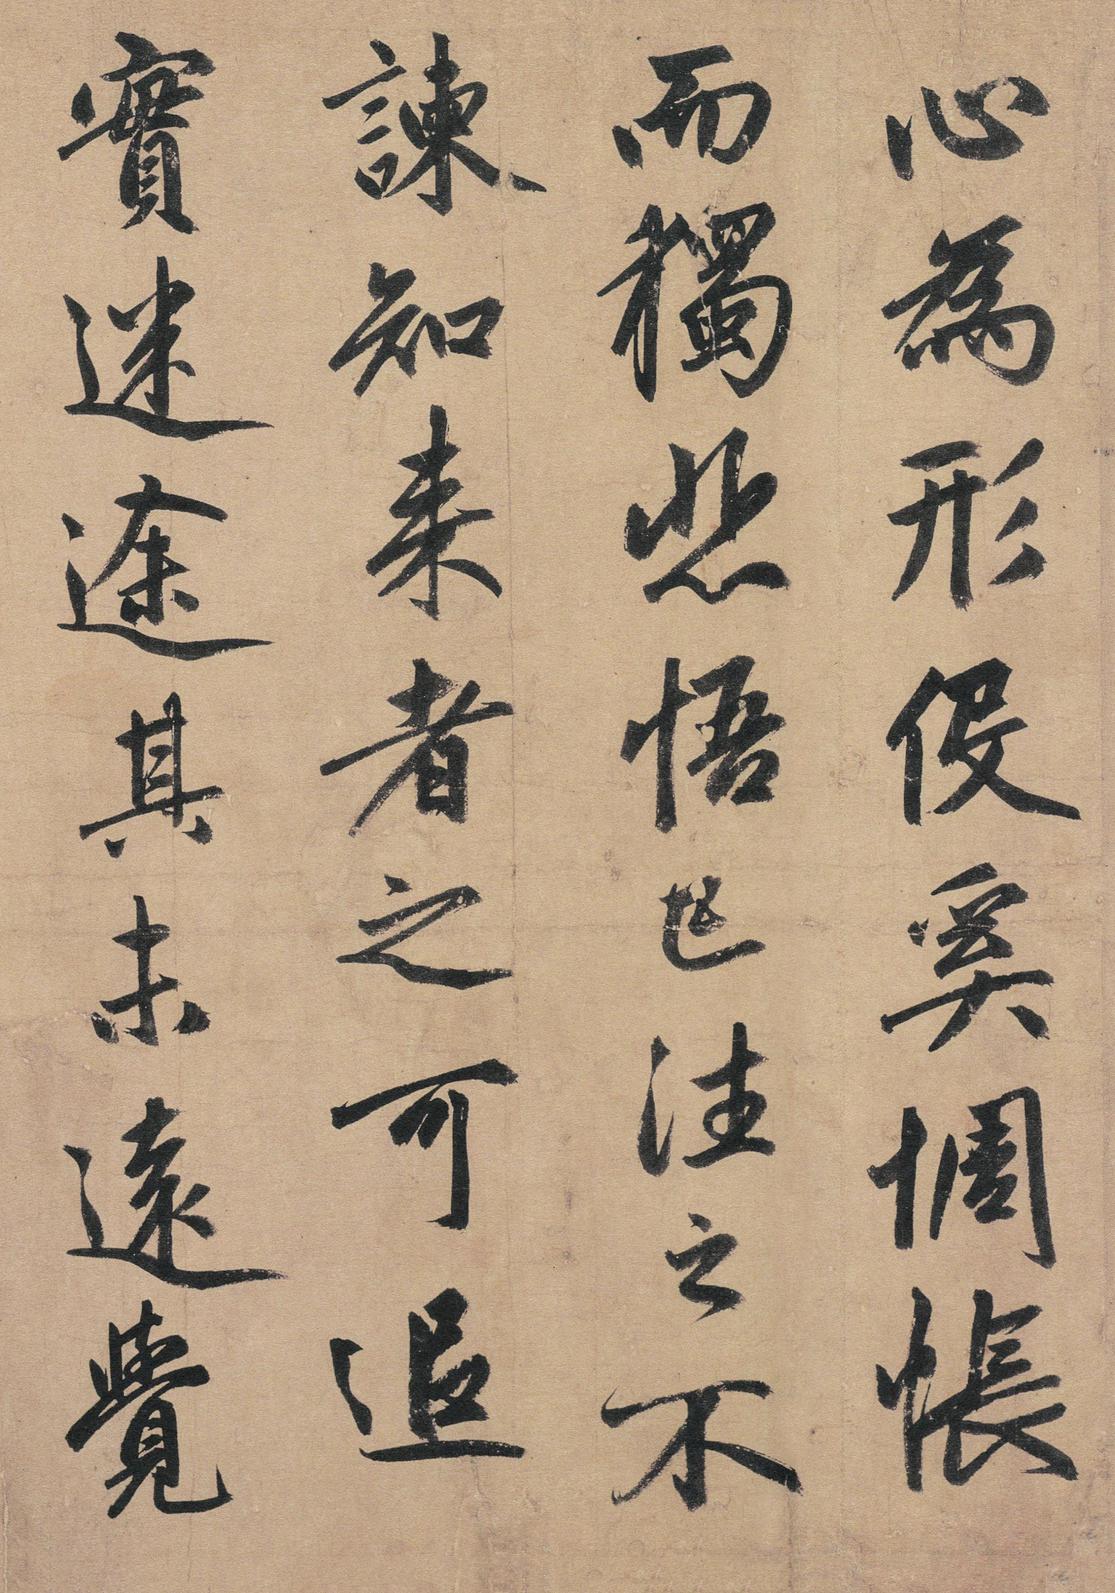 心為形役奚惆悵
而獨悲悟已往之不
諫知来者之可追
實迷途其未遠覺